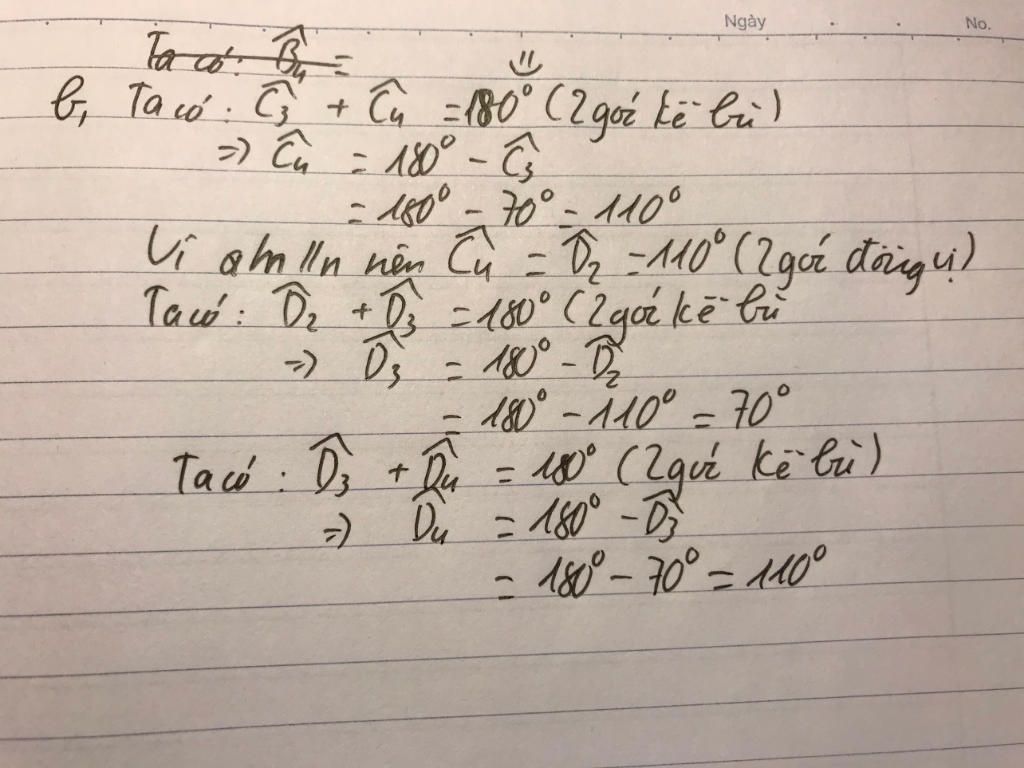 Ngày No.
Ta có: B̂₄ =
b, Ta có: Ĉ₃ + Ĉ₄ = 180° (2 góc kề bù)
=> Ĉ₄ = 180° - Ĉ₃
= 180° - 70° = 110°
Vì m // n nên Ĉ₄ = D̂₂ = 110° (2 góc đồng vị)
Ta có: D̂₂ + D̂₃ = 180° (2 góc kề bù
=> D̂₃ = 180° - D̂₂
= 180° - 110° = 70°
Ta có: D̂₃ + D̂₄ = 180° (2 góc kề bù)
=> D̂₄ = 180° - D̂₃
= 180° - 70° = 110°